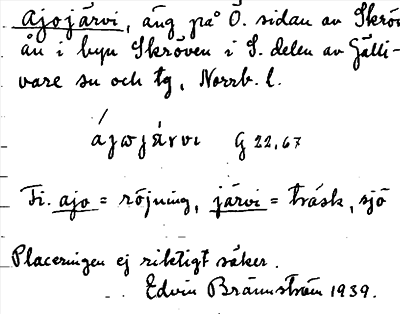 Ajojärvi, äng på Ö. sidan av Skrö
ån i byn Skröven i S. delen av Gälli-
vare sn och tg, Norrb. l.
ájωjärvı G 22,67
Fi. ajo = röjning, järvi = träsk, sjö
Placeringen ej riktigt säker.
Edvin Brännström 1939.